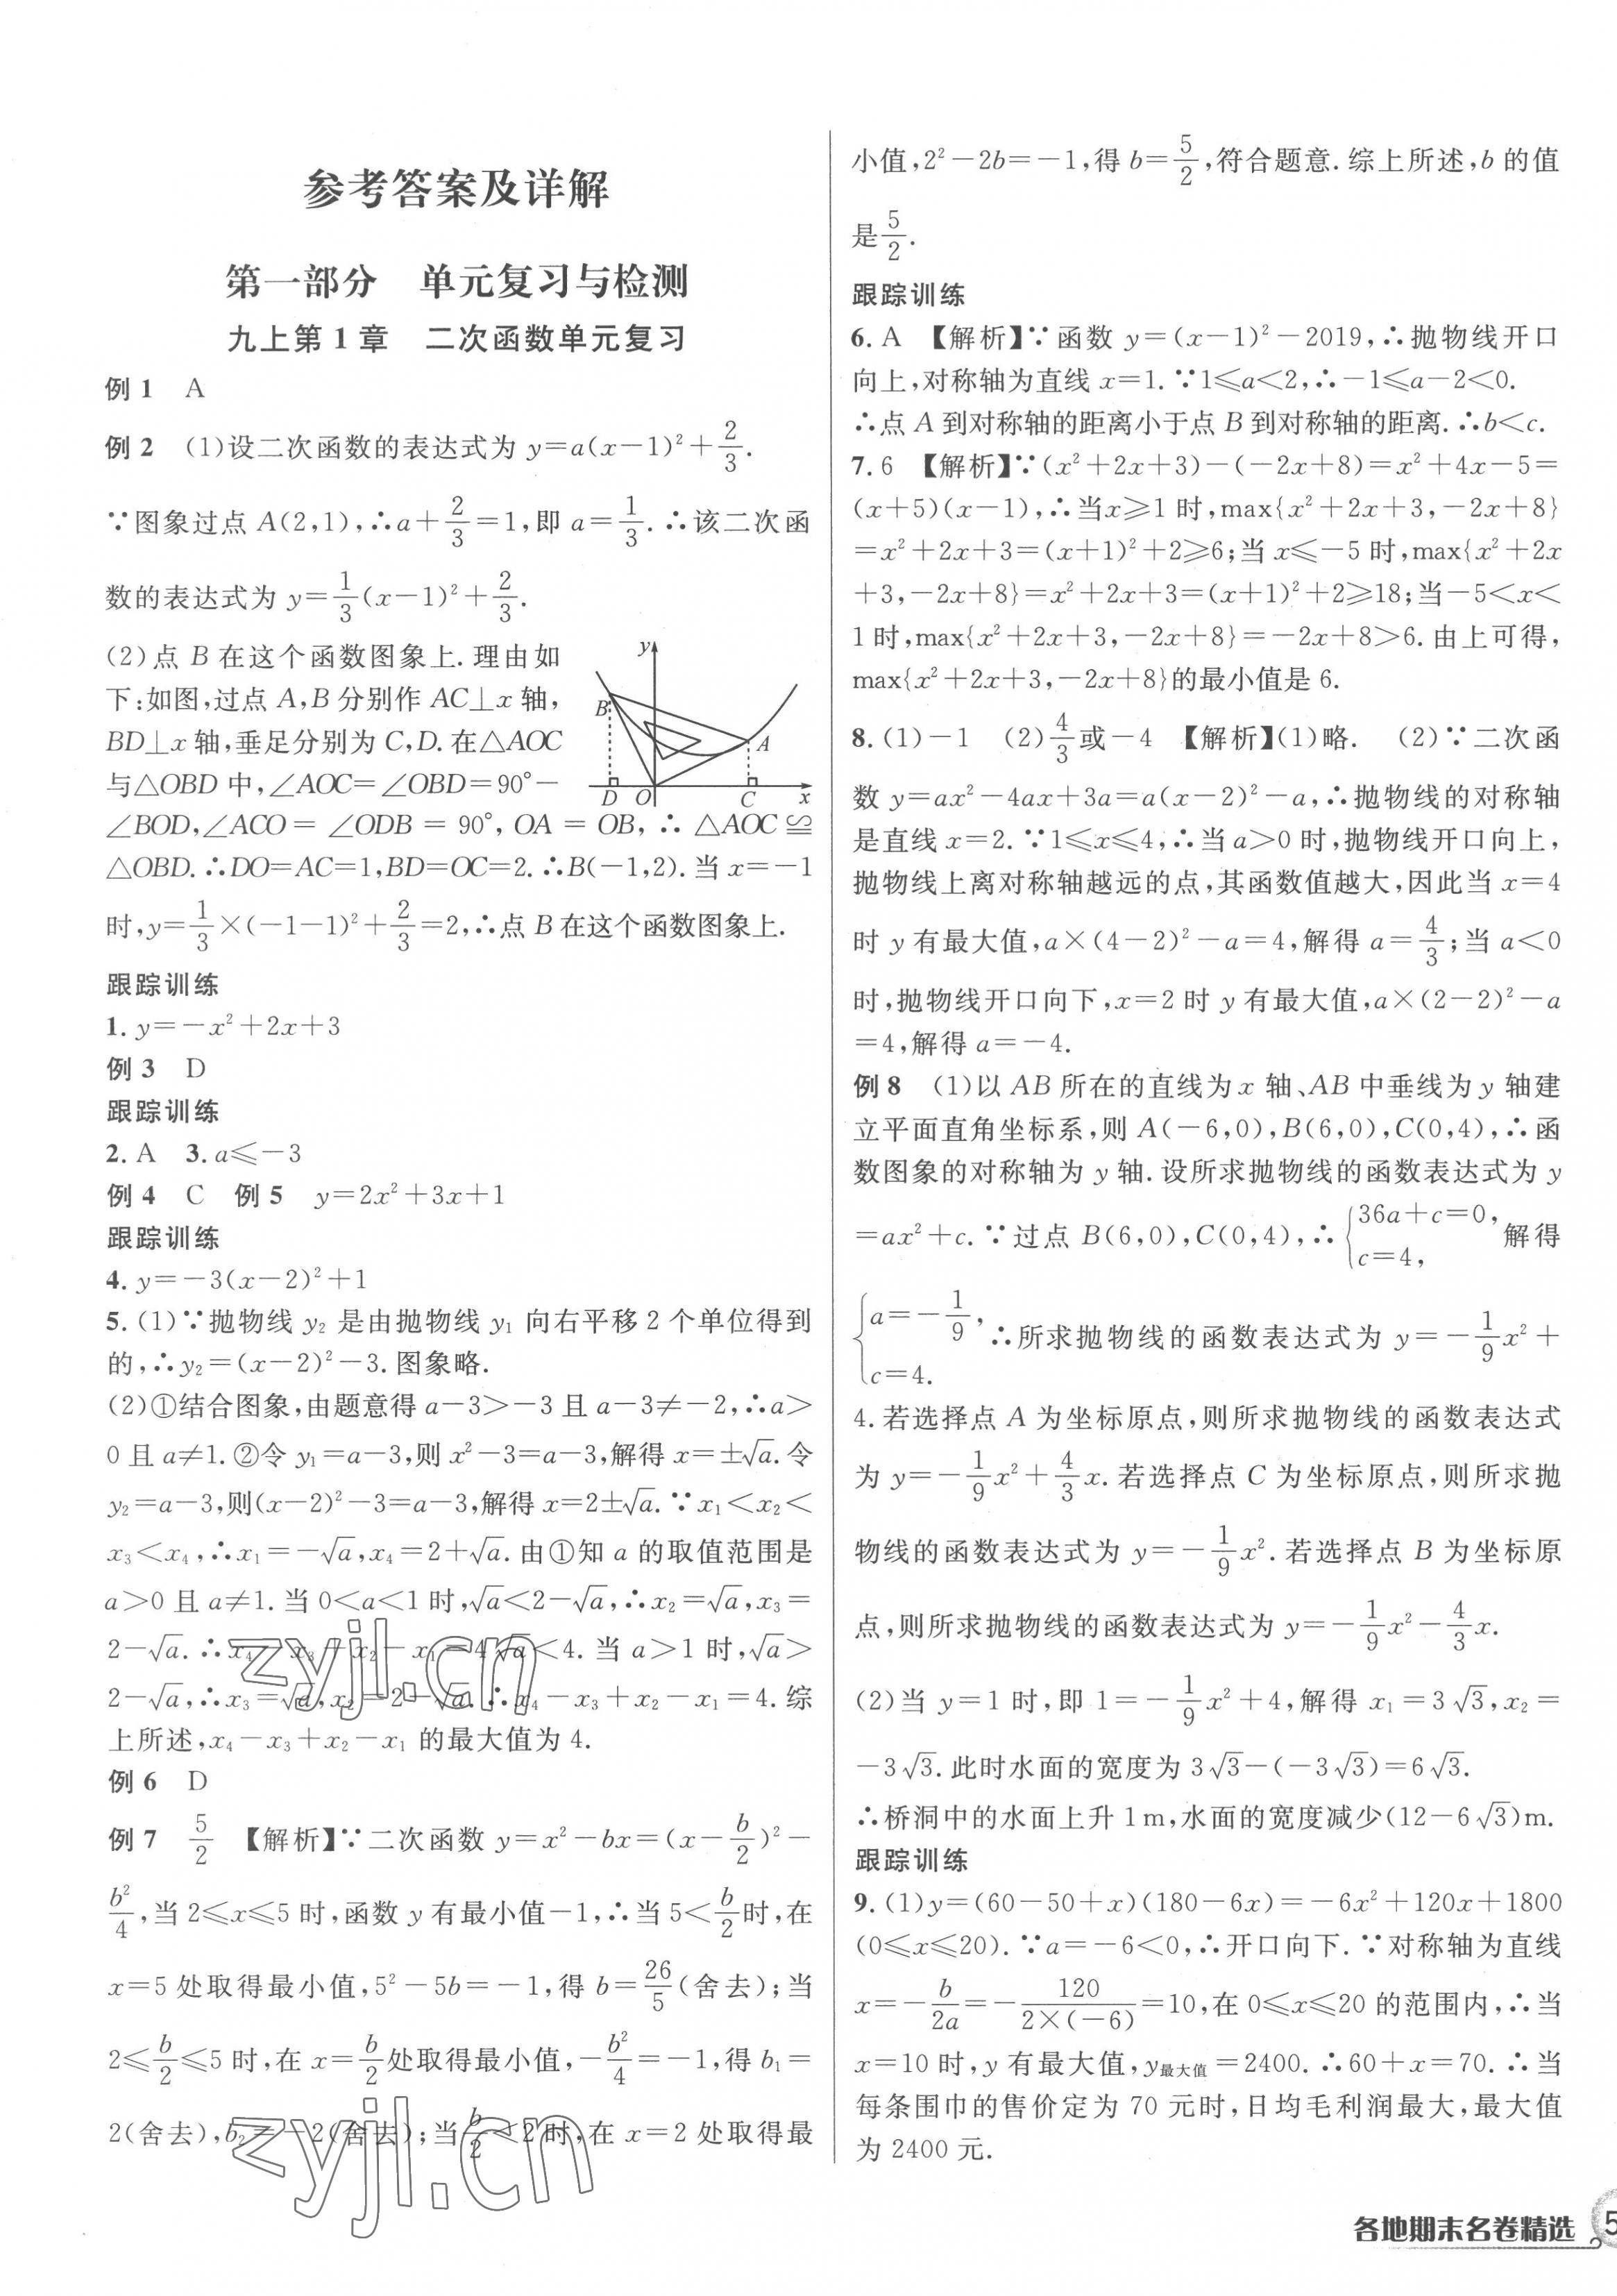 参考答案及详解
第一部分　单元复习与检测
九上第1章　二次函数单元复习
例1　A
例2　(1)设二次函数的表达式为 y=a(x-1)²+2/3.
∵图象过点 A(2,1),∴a+2/3=1,即 a=1/3.∴该二次函
数的表达式为 y=1/3(x-1)²+2/3.
(2)点 B 在这个函数图象上.理由如
下:如图,过点 A,B 分别作 AC⊥x 轴,
BD⊥x 轴,垂足分别为 C,D.在△AOC
与△OBD 中,∠AOC=∠OBD=90°-
∠BOD,∠ACO=∠ODB=90°,OA=OB,∴△AOC≌
△OBD.∴DO=AC=1,BD=OC=2.∴B(-1,2).当 x=-1
时,y=1/3×(-1-1)²+2/3=2,∴点 B 在这个函数图象上.
y
B
A
D
O
C
x
跟踪训练
1. y=-x²+2x+3
例3　D
跟踪训练
2. A　3. a≤-3
例4　C　例5　y=2x²+3x+1
跟踪训练
4. y=-3(x-2)²+1
5. (1)∵抛物线 y₂ 是由抛物线 y₁ 向右平移 2 个单位得到
的,∴y₂=(x-2)²-3.图象略.
(2)①结合图象,由题意得 a-3>-3 且 a-3≠-2,∴a>
0 且 a≠1.②令 y₁=a-3,则 x²-3=a-3,解得 x=±√a.令
y₂=a-3,则(x-2)²-3=a-3,解得 x=2±√a.∵x₁<x₂<
x₃<x₄,∴x₁=-√a,x₄=2+√a.由①知 a 的取值范围是
a>0 且 a≠1.当 0<a<1 时,√a<2-√a,∴x₂=√a,x₃=
2-√a.∴x₄-x₃+x₂-x₁=4√a<4.当 a>1 时,√a>
2-√a,∴x₃=√a,x₂=2-√a.∴x₄-x₃+x₂-x₁=4.综
上所述,x₄-x₃+x₂-x₁ 的最大值为 4.
例6　D
例7　5/2　【解析】∵二次函数 y=x²-bx=(x-b/2)²-
b²/4,当 2≤x≤5 时,函数 y 有最小值-1,∴当 5<b/2时,在
x=5 处取得最小值,5²-5b=-1,得 b=26/5(舍去);当
2≤b/2≤5 时,在 x=b/2处取得最小值,-b²/4=-1,得 b₁=
2(舍去),b₂=-2(舍去);当b/2<2 时,在 x=2 处取得最
小值,2²-2b=-1,得 b=5/2,符合题意.综上所述,b 的值
是5/2.
跟踪训练
6. A　【解析】∵函数 y=(x-1)²-2019,∴抛物线开口
向上,对称轴为直线 x=1.∵1≤a<2,∴-1≤a-2<0.
∴点 A 到对称轴的距离小于点 B 到对称轴的距离.∴b<c.
7. 6　【解析】∵(x²+2x+3)-(-2x+8)=x²+4x-5=
(x+5)(x-1),∴当x≥1 时,max{x²+2x+3,-2x+8}
=x²+2x+3=(x+1)²+2≥6;当 x≤-5 时,max{x²+2x
+3,-2x+8}=x²+2x+3=(x+1)²+2≥18;当-5<x<
1 时,max{x²+2x+3,-2x+8}=-2x+8>6.由上可得,
max{x²+2x+3,-2x+8}的最小值是 6.
8. (1)-1　(2)4/3或-4　【解析】(1)略.　(2)∵二次函
数 y=ax²-4ax+3a=a(x-2)²-a,∴抛物线的对称轴
是直线 x=2.∵1≤x≤4,∴当 a>0 时,抛物线开口向上,
抛物线上离对称轴越远的点,其函数值越大,因此当 x=4
时 y 有最大值,a×(4-2)²-a=4,解得 a=4/3;当 a<0
时,抛物线开口向下,x=2 时 y 有最大值,a×(2-2)²-a
=4,解得 a=-4.
例8　(1)以 AB 所在的直线为 x 轴、AB 中垂线为 y 轴建
立平面直角坐标系,则 A(-6,0),B(6,0),C(0,4),∴函
数图象的对称轴为 y 轴.设所求抛物线的函数表达式为 y
=ax²+c.∵过点 B(6,0),C(0,4),∴{36a+c=0, c=4,解得
{a=-1/9, c=4.∴所求抛物线的函数表达式为 y=-1/9x²+
4.若选择点 A 为坐标原点,则所求抛物线的函数表达式
为 y=-1/9x²+4/3x.若选择点 C 为坐标原点,则所求抛
物线的函数表达式为 y=-1/9x².若选择点 B 为坐标原
点,则所求抛物线的函数表达式为 y=-1/9x²-4/3x.
(2)当 y=1 时,即 1=-1/9x²+4,解得 x₁=3√3,x₂=
-3√3.此时水面的宽度为 3√3-(-3√3)=6√3.
∴桥洞中的水面上升 1 m,水面的宽度减少(12-6√3)m.
跟踪训练
9. (1)y=(60-50+x)(180-6x)=-6x²+120x+1800
(0≤x≤20).∵a=-6<0,∴开口向下.∵对称轴为直线
x=-b/2a=-120/2×(-6)=10,在 0≤x≤20 的范围内,∴当
x=10 时,y 有最大值,y最大值=2400.∴60+x=70.∴当
每条围巾的售价定为 70 元时,日均毛利润最大,最大值
为 2400 元.
zyjl.cn
zyjl.cn
各地期末名卷精选
5